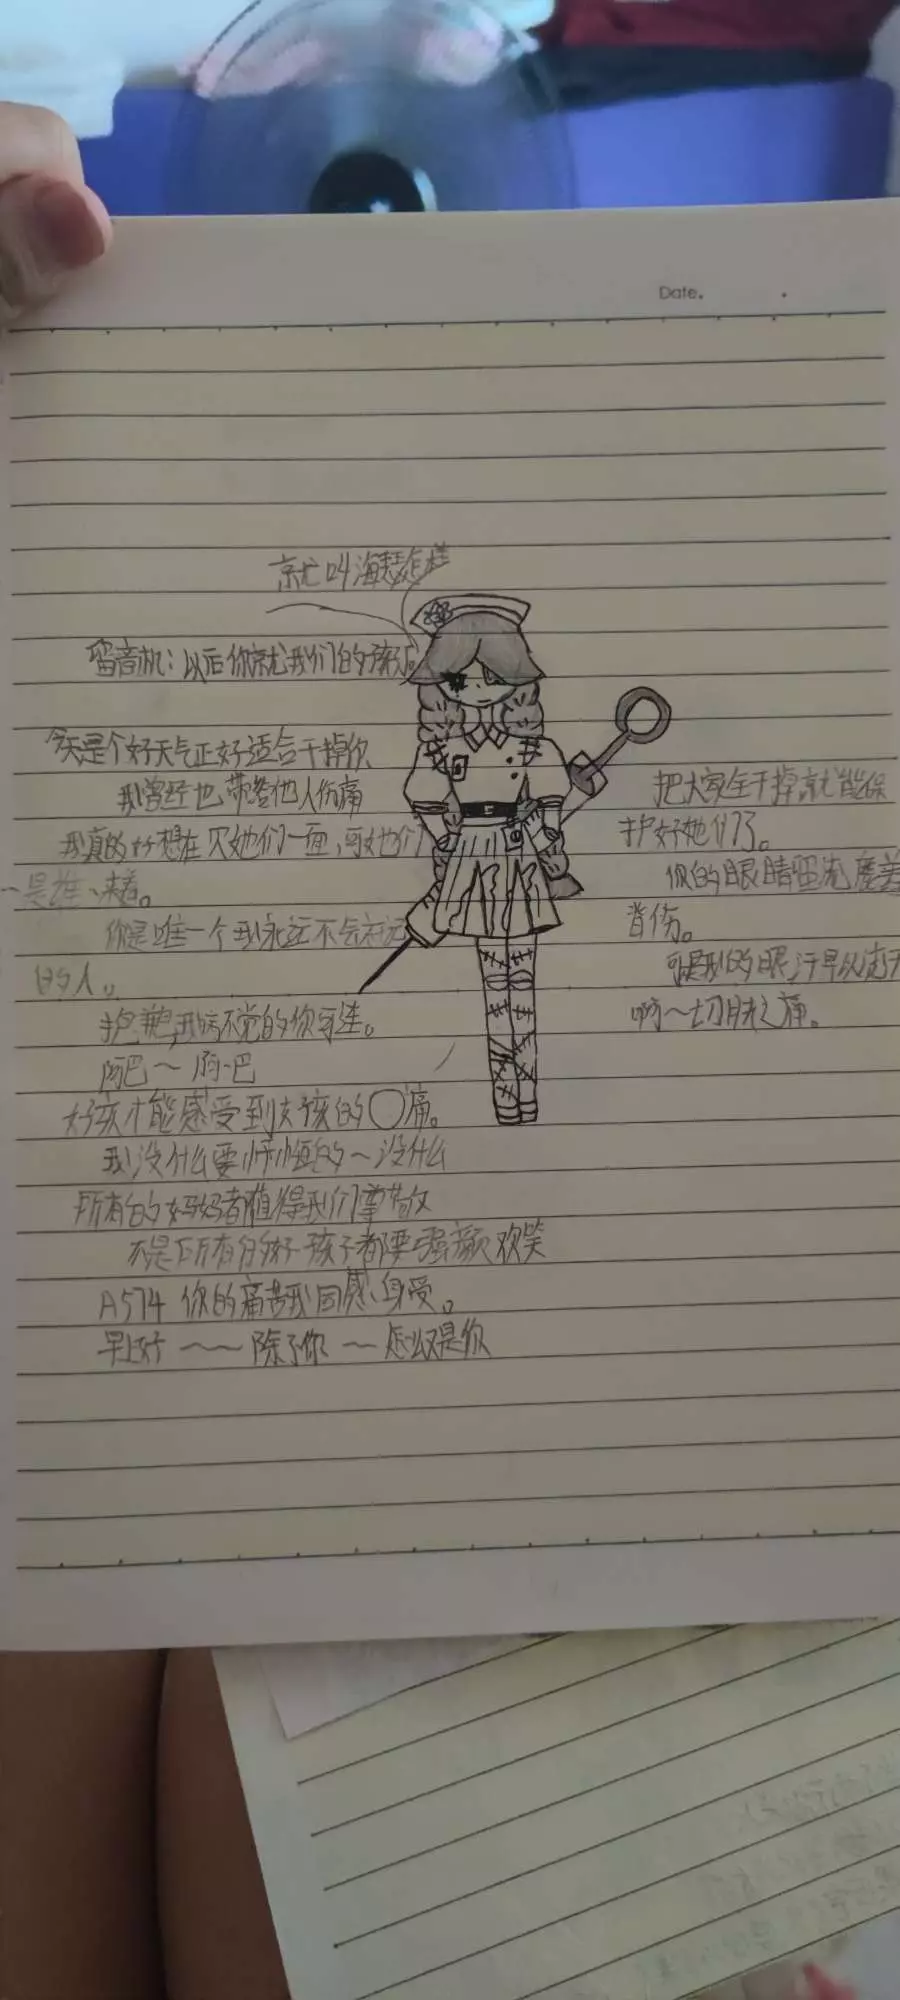 Date.
京尤叫海瑟怎样
留音机：以后你就尤我们的孩
今天是个好天气正好适合干掉你
我曾经也带给他人伤痛
我真的好想在 次她们一面，可她们
是谁、来着。
你是唯一个我永远不会忘记
的人。
抱歉，我 不觉的你可连。
阿巴～阿巴
好孩才能感受到女孩的〇痛。
我没什么要 的～没什么
所有的妈妈者值得我们尊敬
不是所有的好孩子都要强颜欢笑
A574 你的痛苦我同感、身受。
早上好 ～～～ 除了你 ～ 怎么又是你
把大家全干掉就能保
护好她们了。
你的眼睛 流 着
背伤。
可是我的眼 早以
啊～切肤之痛。